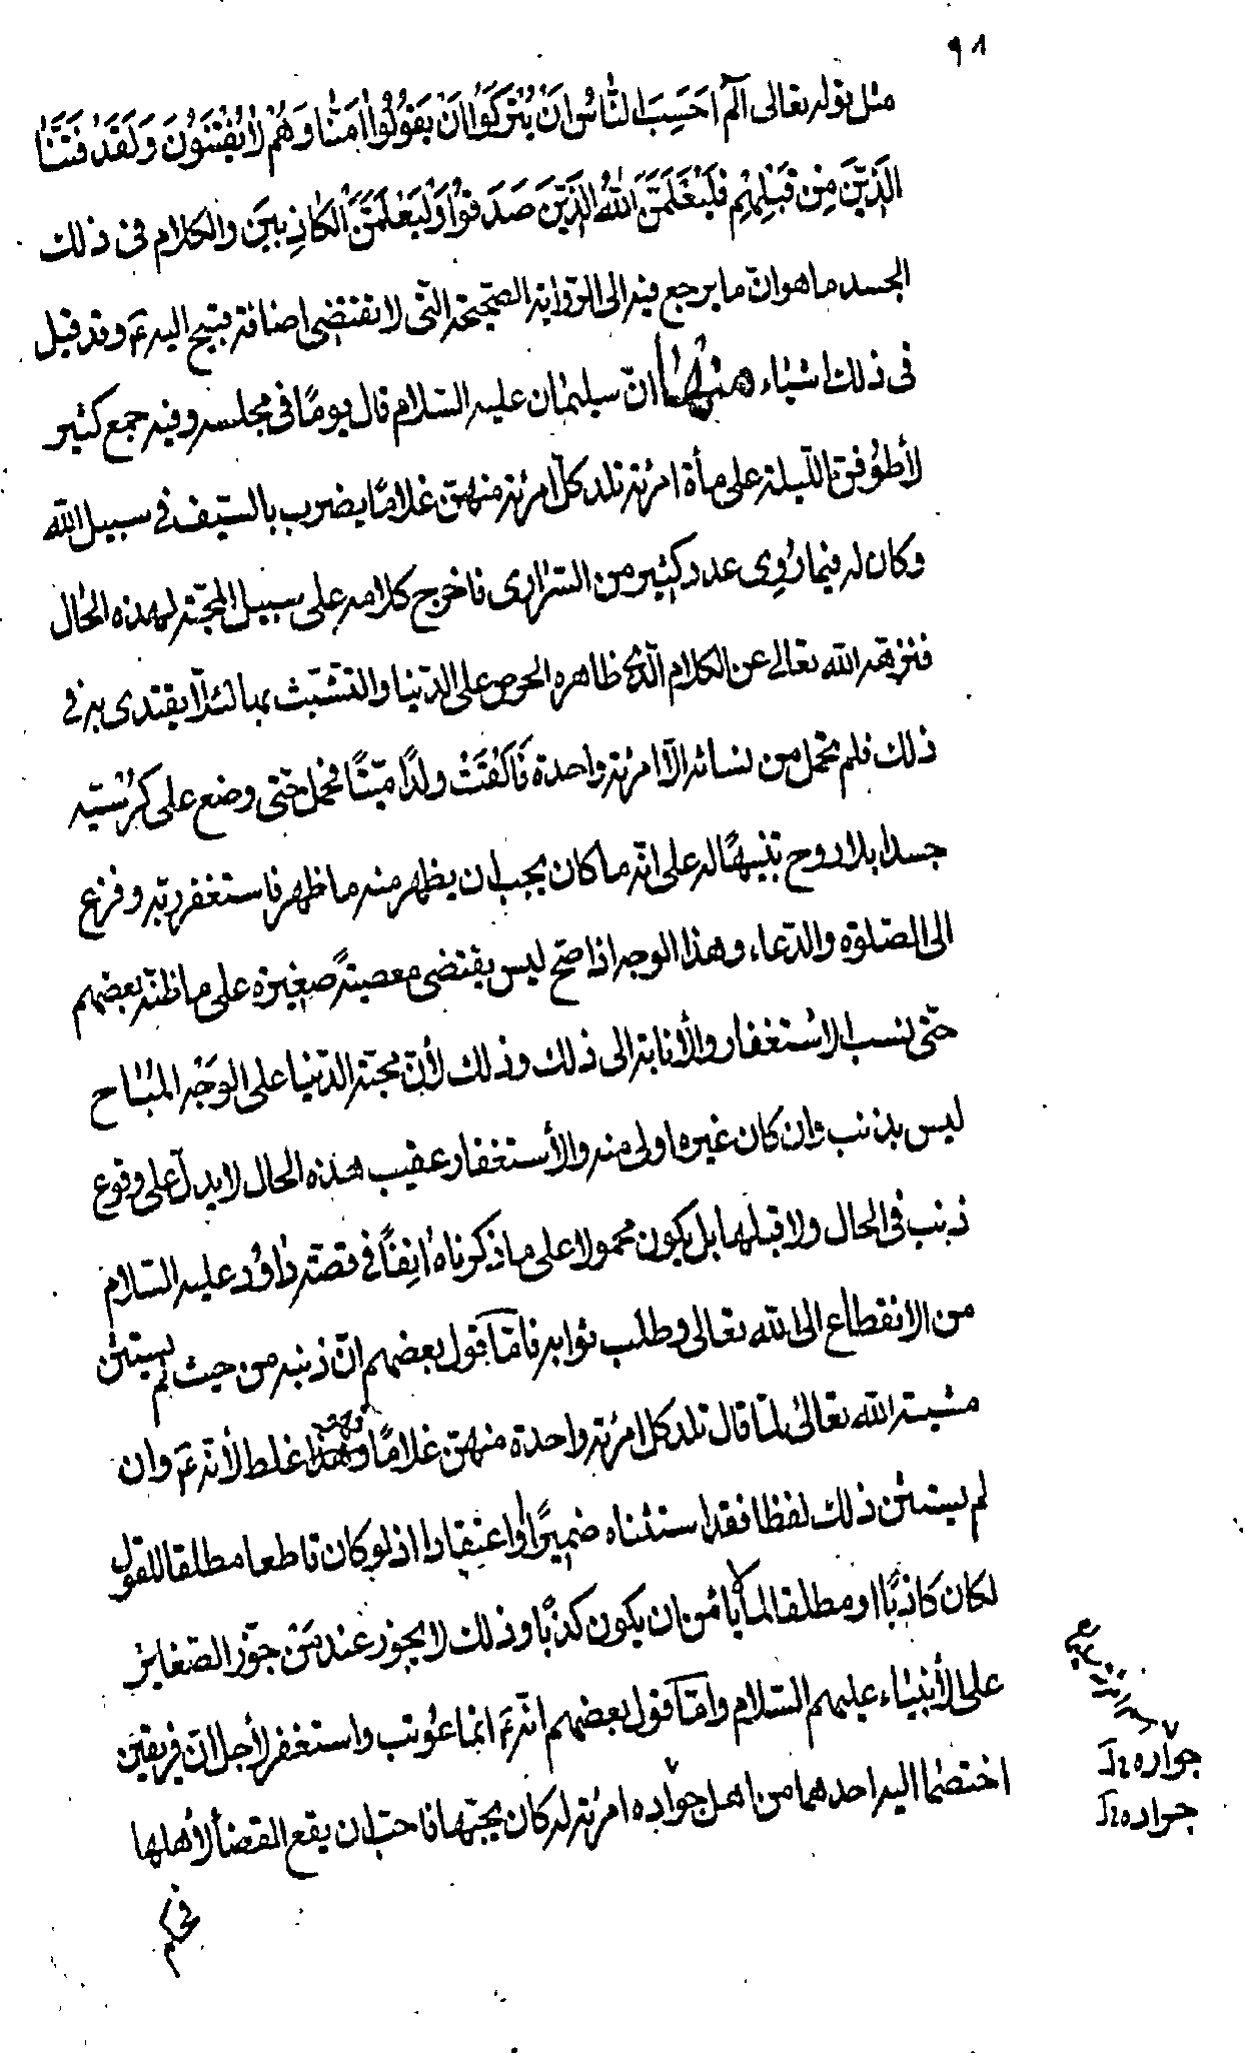 ٩٨
مثل قوله تعالى الٓمٓ اَحَسِبَ النّاسُ اَنْ يُتْرَكُوا اَنْ يَقُولُوا اٰمَنّا وَهُمْ لاٰ يُفْتَنُونَ وَلَقَدْ فَتَنَّا
الَّذِينَ مِنْ قَبْلِهِمْ فَلَيَعْلَمَنَّ اللهُ الَّذِينَ صَدَقُوا وَلَيَعْلَمَنَّ الْكاٰذِبِينَ والكلام فى ذلك
الجسد ما هو انّ ما يرجع فيه الى الرّواية الصّحيحة الّتى لا تقتضى اضافة قبيح اليه ع وقد قيل
فى ذلك اشياء منها انّ سليمان عليه السّلام قال يومًا فى مجلسه وفيه جمع كثير
لأطوفنّ اللّيلة على مأة امرئة تلد كلّ امرئة منهنّ غلامًا يضرب بالسّيف فى سبيل الله
وكان له فيما رُوِى عدد كثير من السّرارى فاخرج كلامه على سبيل المحبّة لهذه الحال
فنزهه الله تعالى عن الكلام الّذى ظاهره الحرص على الدّنيا والتّشبّث بها لئلّا يقتدى به فى
ذلك فلم تحمل من نسائه الّا امرئة واحدة فَاَلْقَتْ ولدًا ميّتًا فحمل حتّى وضع على كُرْسيّه
جسدا بلا روح تنبيهًا له على انّه ما كان يجب ان يظهر منه ما ظهر فاستغفر ربّه وفزع
الى الصّلوة والدّعاء وهذا الوجه اذا صحّ ليس يقتضى معصيةً صغيرة على ما ظنّه بعضهم
حتّى نسب الاستغفار والأنابة الى ذلك وذلك لأنّ محبّة الدّنيا على الوَجْه المباح
ليس بذنب وان كان غيره اولى منه والأستغفار عقيب هذه الحال لا يدلّ على وقوع
ذنب فى الحال ولا قبلها بل يكون محمولا على ما ذكرناه اٰنِفًا فى قصّة داوُد عليه السّلام
من الانقطاع الى الله تعالى وطلب ثوابه فامّا قول بعضهم انّ ذنبه من حيث لم يستثن
مشيّة الله تعالى لمّا قال تلد كل امرئة واحدة منهنّ غلامًا وهذا غلط لأنّه ع وان
لم يستثن ذلك لفظا فقد استثناه ضميرًا او اعتقادا اذ لو كان قاطعا مطلقا للقول
لكان كاذبًا او مطلقا لما لا يأمن ان يكون كذبًا وذلك لا يجوز عند مَنْ جوّز الصّغاير
على الأنبياء عليهم السّلام وامّا قول بعضهم انّه ع انما عُوتب واستغفر لأجل انّ فريقين
اختصما اليه احدهما من اهل جواده امرئة له كان يحبّها فاحبّ ان يقع القضأ لأهلها
جواره
جراده
فحكم